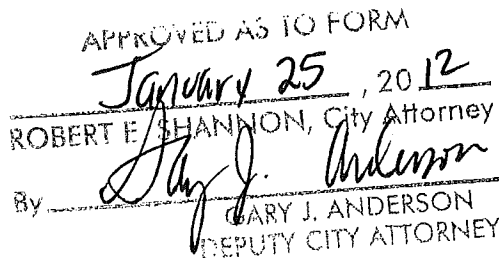 APPROVED AS TO FORM
January 25, 2012
ROBERT E. SHANNON, City Attorney
By Gary J. Anderson
GARY J. ANDERSON
DEPUTY CITY ATTORNEY